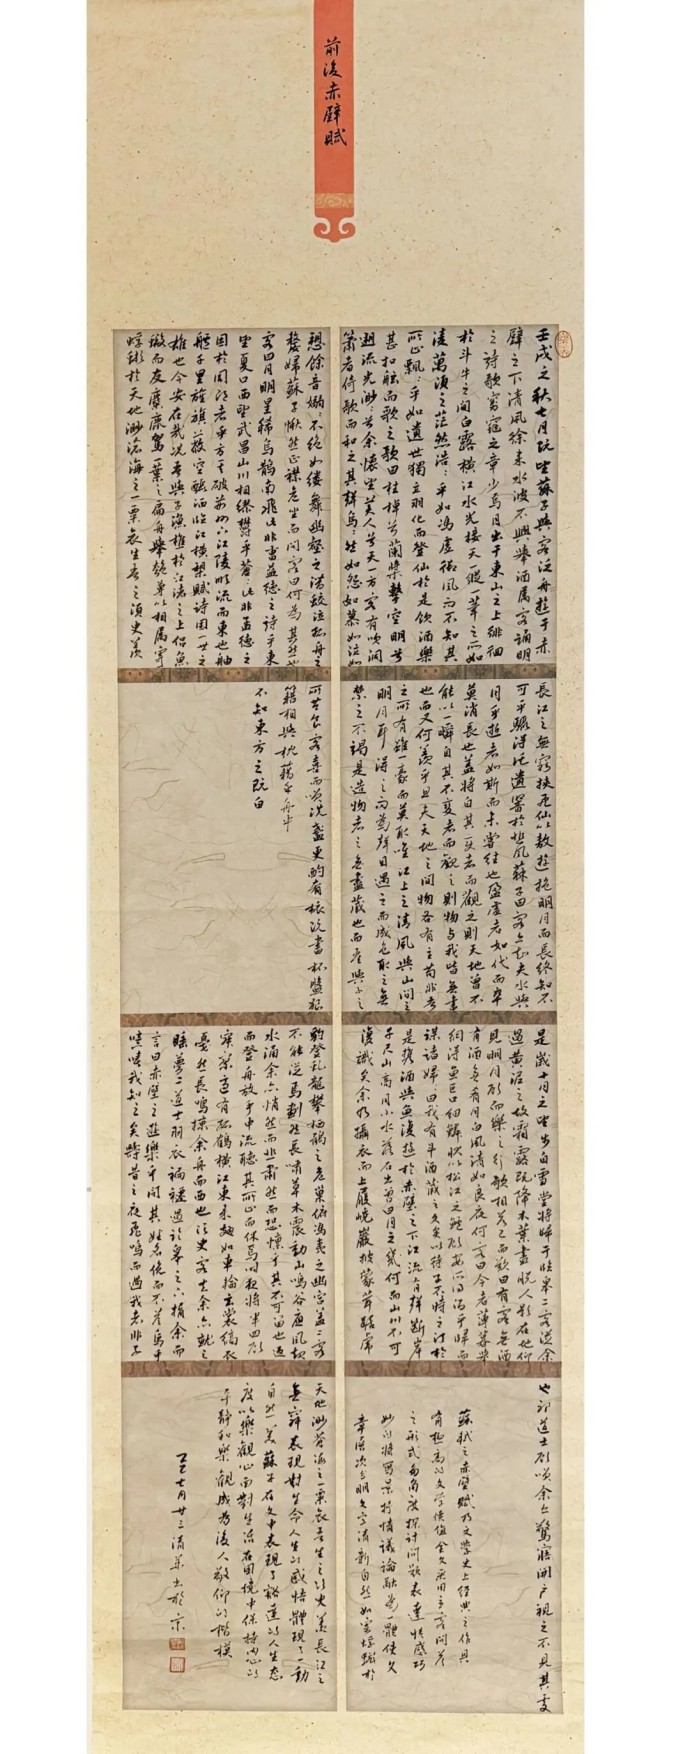 前後赤壁賦
壬戌之秋七月既望蘇子與客泛舟遊于赤
壁之下清風徐來水波不興舉酒属客誦明月
之詩歌窈窕之章少焉月出于東山之上徘徊
於斗牛之間白露橫江水光接天縱一葦之所如
凌萬頃之茫然浩浩乎如馮虛御風而不知其
所止飄飄乎如遺世獨立羽化而登仙於是飲酒樂
甚扣舷而歌之歌曰桂棹兮蘭槳擊空明兮
遡流光渺渺兮余懷望美人兮天一方客有吹洞
簫者倚歌而和之其聲烏烏然如怨如慕如泣如
愬餘音嫋嫋不絕如縷舞幽壑之潛蛟泣孤舟之
嫠婦蘇子愀然正襟危坐而問客曰何為其然也
客曰月明星稀烏鵲南飛此非孟德之詩乎東
望夏口西望武昌山川相繆鬱乎蒼蒼此非孟德之
困於周郎者乎方其破荊州下江陵順流而東也舳
艫千里旌旗蔽空釃酒臨江橫槊賦詩固一世之
雄也今安在哉況吾與子漁樵於江渚之上侶魚
蝦而友麋鹿駕一葉之扁舟舉匏尊以相属寄
蜉蝣於天地渺滄海之一粟哀生吾之須臾羨
長江之無窮挾飛仙以敖遊抱明月而長終知不
可乎驟得託遺響於悲風蘇子曰客亦知夫水與
月乎逝者如斯而未嘗往也盈虛者如代而卒
莫消長也蓋將自其變者而觀之則天地曾不
能以一瞬自其不變者而觀之則物与我皆無盡
也而又何羨乎且夫天地之間物各有主苟非吾
之所有雖一毫而莫取唯江上之清風與山間之
明月耳得之而為聲目遇之而成色取之無
禁之不竭是造物者之無盡藏也而吾與子之
所共食客喜而笑洗盞更酌肴核既盡杯盤狼
籍相與枕藉乎舟中
不知東方之既白
是歲十月之望步自雪堂將歸于臨皋二客從余
過黃泥之坂霜露既降木葉盡脫人影在地仰
見明月顧而樂之行歌相荅已而歎曰有客無酒
有酒無肴月白風清如良夜何客曰今者薄暮舉
網得魚巨口細鱗狀如松江之鱸顧安所得酒乎歸而
謀諸婦婦曰我有斗酒藏之久矣以待子不時之汁於
是攜酒與魚復遊於赤壁之下江流有聲斷岸
千尺山高月小水落石出曾日月之幾何而山川不可
復識矣余乃攝衣而上履巉巖披蒙茸踞虎
豹登虬龍攀栖鶻之危巢俯馮夷之幽宮蓋二客
不能從焉劃然長嘯草木震動山鳴谷應風起
水涌余亦悄然而悲肅然而恐懍乎其不可留也返
而登舟放乎中流聽其所止而休焉時夜將半四顧
寂寥適有孤鶴橫江東來翅如車輪玄裳縞衣
戛然長鳴掠余舟而西也須臾客去余亦就之
睡夢二道士羽衣褊䙰過於皋之下揖余而
言曰赤壁之遊樂乎問其姓名俛而不荅嗚乎
嘻嘻我知之矣疇昔之夜飛鳴而過我者非子
也邪道士顧笑余亦驚寤開户視之不見其處
蘇軾之赤壁賦乃文學史上經典之作具
有極高的文學價值全文采用主客問荅
之形式多角度探討問題表達情感巧
妙的將寫景抒情議論融為一體使文
章層次分明文字清新自然如寄蜉蝣於
天地渺蒼海之一粟哀吾生之須臾羨長江之
無窮表現對生命人生的感悟體現了一動
自然一美蘇子在文中表現了豁達的人生態
度以樂觀心面對生流在困境中保持內心的
平靜和樂觀成為後人敬仰的楷模
乙巳七月廿三清華書於京